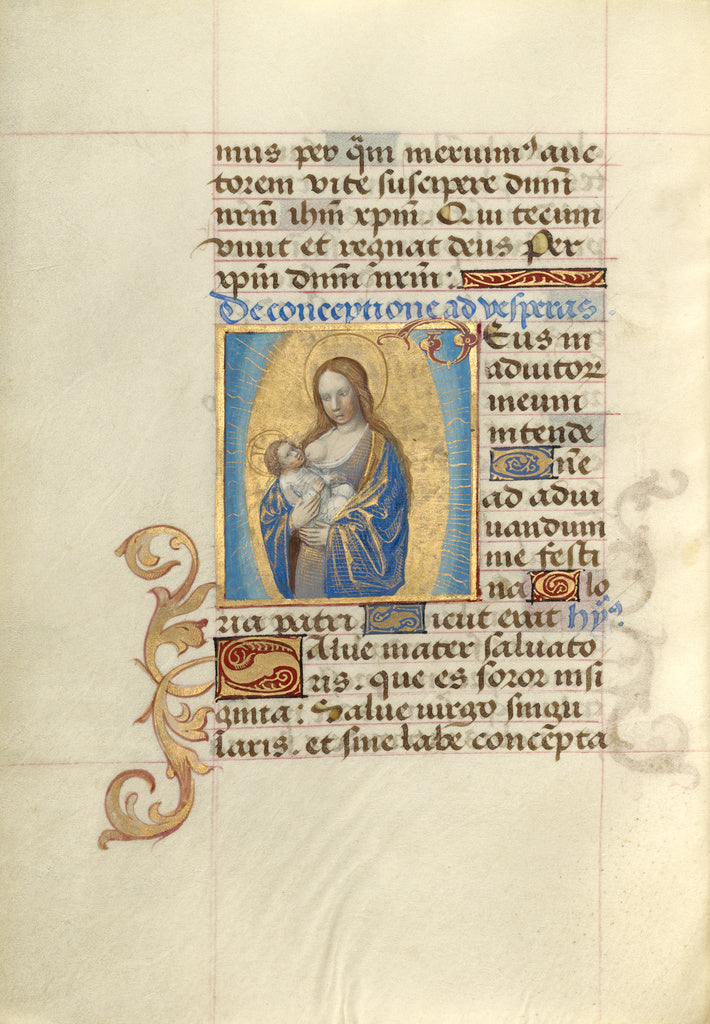 mus per qm̄ meruimꝰ auc
torem vite suscipere dnm̄
nrm̄ ihm̄ xpm̄. Qui tecum
viuit et regnat deus Per
xpm̄ dnm̄ nrm̄:
De conceptione ad vesperas.
DEus in
adiutori
meum
intende
Dn̄e
ad adiu
uandum
me festi
na Glo
ria patri. Sicut erat hyꝰ.
Salue mater saluato
ris. que es soror insi
gnita: Salue uirgo singu
laris. et sine labe concēpta